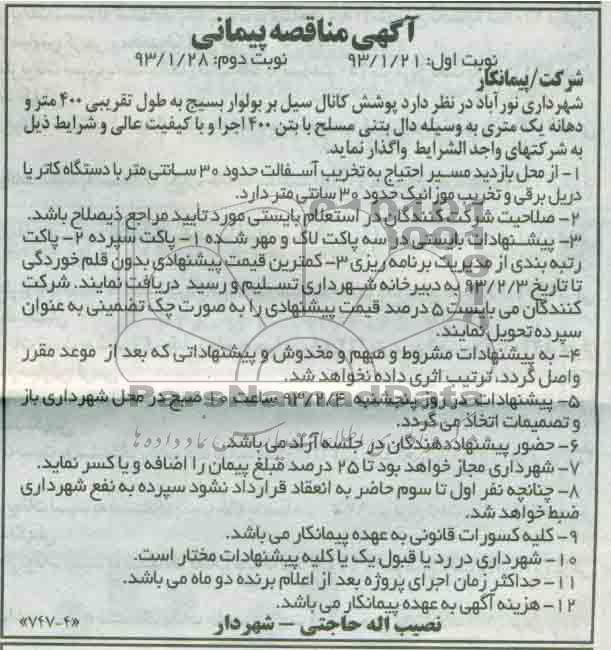 آگهی مناقصه پیمانی
نوبت اول: ۹۳/۱/۲۱ نوبت دوم: ۹۳/۱/۲۸
شرکت/پیمانکار
شهرداری نورآباد در نظر دارد پوشش کانال سیل بر بولوار بسیج به طول تقریبی ۴۰۰ متر و
دهانه یک متری به وسیله دال بتنی مسلح با بتن ۴۰۰ اجرا و با کیفیت عالی و شرایط ذیل
به شرکتهای واجد الشرایط واگذار نماید.
۱- از محل بازدید مسیر احتیاج به تخریب آسفالت حدود ۳۰ سانتی متر با دستگاه کاتر یا
دریل برقی و تخریب موزائیک حدود ۳۰ سانتی متر دارد.
۲- صلاحیت شرکت کنندگان در استعلام بایستی مورد تأیید مراجع ذیصلاح باشد.
۳- پیشنهادات بایستی در سه پاکت لاک و مهر شده ۱- پاکت سپرده ۲- پاکت
رتبه بندی از مدیریت برنامه ریزی ۳- کمترین قیمت پیشنهادی بدون قلم خوردگی
تا تاریخ ۹۳/۲/۳ به دبیرخانه شهرداری تسلیم و رسید دریافت نمایند. شرکت
کنندگان می بایست ۵ درصد قیمت پیشنهادی را به صورت چک تضمینی به عنوان
سپرده تحویل نمایند.
۴- به پیشنهادات مشروط و مبهم و مخدوش و پیشنهاداتی که بعد از موعد مقرر
واصل گردد، ترتیب اثری داده نخواهد شد.
۵- پیشنهادات در روز پنجشنبه ۹۳/۲/۴ ساعت ۱۰ صبح در محل شهرداری باز
و تصمیمات اتخاذ می گردد.
۶- حضور پیشنهاددهندگان در جلسه آزاد می باشد.
۷- شهرداری مجاز خواهد بود تا ۲۵ درصد مبلغ پیمان را اضافه و یا کسر نماید.
۸- چنانچه نفر اول تا سوم حاضر به انعقاد قرارداد نشود سپرده به نفع شهرداری
ضبط خواهد شد.
۹- کلیه کسورات قانونی به عهده پیمانکار می باشد.
۱۰- شهرداری در رد یا قبول یک یا کلیه پیشنهادات مختار است.
۱۱- حداکثر زمان اجرای پروژه بعد از اعلام برنده دو ماه می باشد.
۱۲- هزینه آگهی به عهده پیمانکار می باشد.
نصیب اله حاجتی – شهردار
«۷۴۷-۴»
ParsNamadData